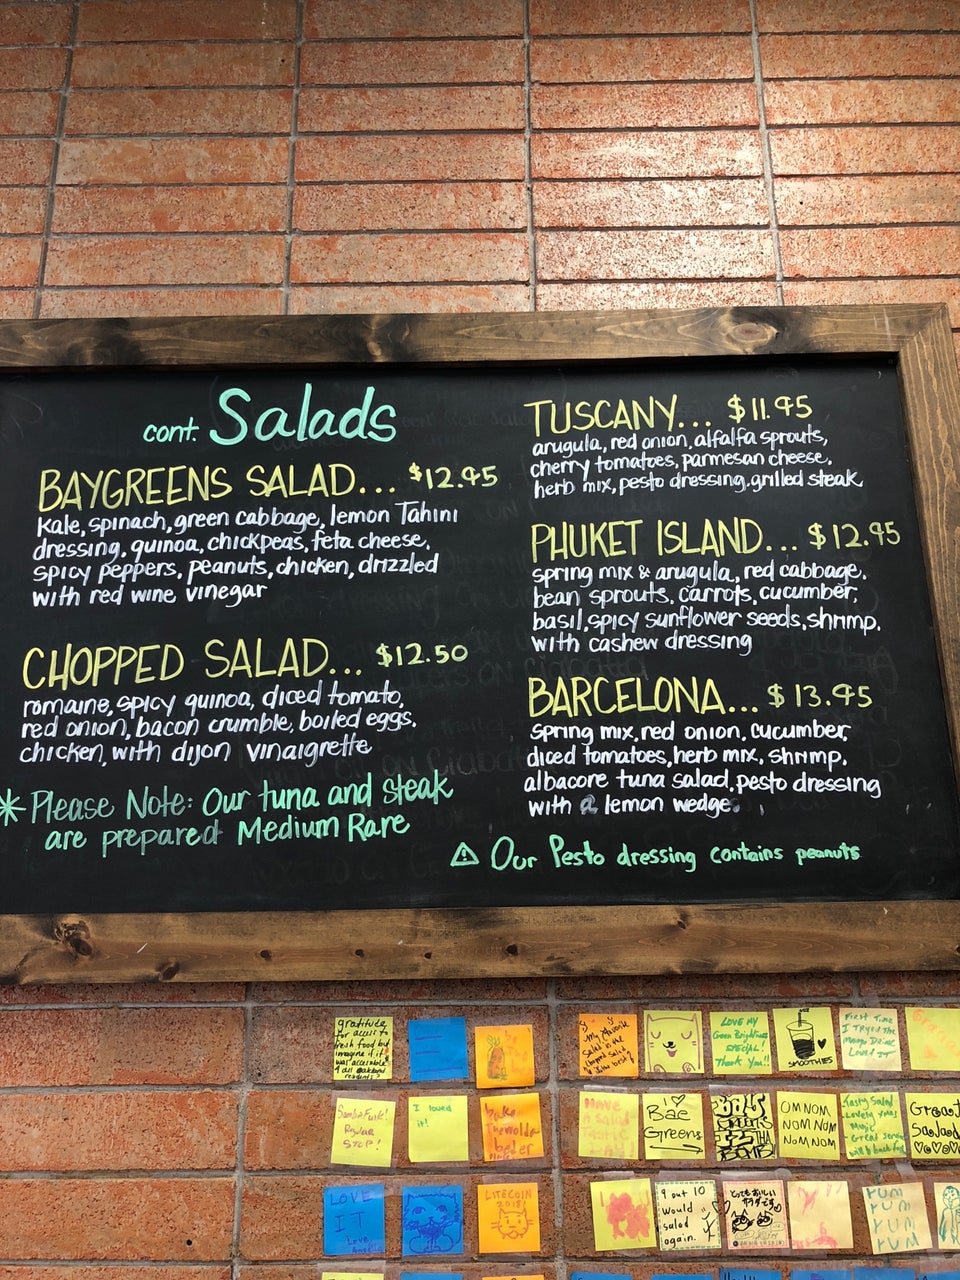 cont. Salads
BAYGREENS SALAD... $12.95
Kale, spinach, green cabbage, lemon Tahini
dressing, quinoa, chickpeas, feta cheese,
spicy peppers, peanuts, chicken, drizzled
with red wine vinegar
CHOPPED SALAD... $12.50
romaine, spicy quinoa, diced tomato,
red onion, bacon crumble, boiled eggs,
chicken, with dijon vinaigrette
* Please Note: Our tuna and steak
are prepared Medium Rare
TUSCANY... $11.95
arugula, red onion, alfalfa sprouts,
cherry tomatoes, parmesan cheese,
herb mix, pesto dressing, grilled steak
PHUKET ISLAND... $12.95
spring mix & arugula, red cabbage,
bean sprouts, carrots, cucumber,
basil, spicy sunflower seeds, shrimp,
with cashew dressing
BARCELONA... $13.95
spring mix, red onion, cucumber,
diced tomatoes, herb mix, shrimp,
albacore tuna salad, pesto dressing
with a lemon wedge.
⚠ Our Pesto dressing contains peanuts
gratitude
for access to
fresh food but
imagine if it
was accessible
My favorite
Salad is the
Chopped Salad
LOVE MY
Green Brightness
SPECIAL!
Thank You!!
SMOOTHIES
First Time
I TRYED The
Mango Drink
Love! IT
Regular
STOP!
I loved
it!
I ♡
Bae
Greens
OM NOM
NOM NOM
NOM NOM
Tasty Salad
Lovely
Music
Great service
will b back
Great
Salad
LOVE
IT
Love
LITECOIN
2018!
9 out 10
would
salad
again.
とってもおいしい
サラダです
YUM
YUM
YUM
YUM